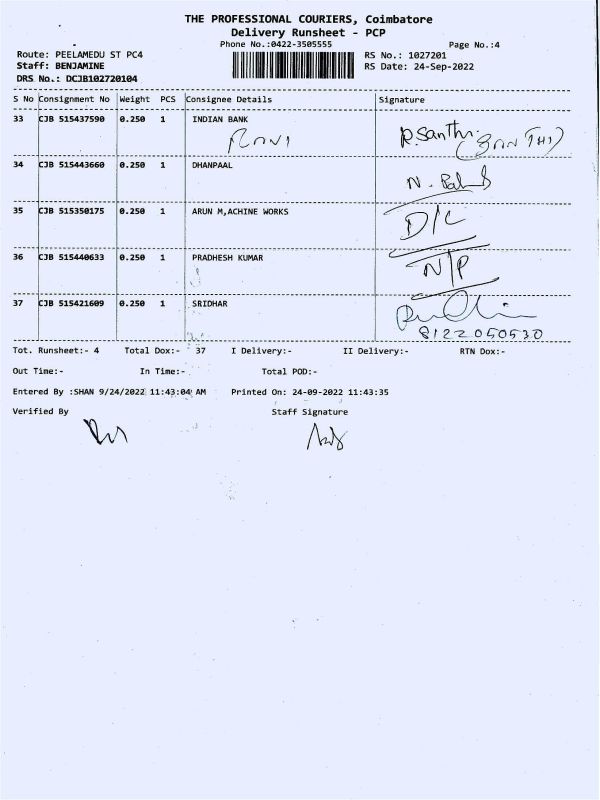 THE PROFESSIONAL COURIERS, Coimbatore
Delivery Runsheet - PCP
Phone No.:0422-3505555
Page No.:4
Route: PEELAMEDU ST PC4
RS No.: 1027201
Staff: BENJAMINE
RS Date: 24-Sep-2022
DRS No.: DCJB102720104
S No Consignment No Weight PCS Consignee Details Signature
33 CJB 515437590 0.250 1 INDIAN BANK
R.Santhi
34 CJB 515443660 0.250 1 DHANPAAL
35 CJB 515350175 0.250 1 ARUN M,ACHINE WORKS
D/L
36 CJB 515440633 0.250 1 PRADHESH KUMAR
N/P
37 CJB 515421609 0.250 1 SRIDHAR
8122050530
Tot. Runsheet:- 4 Total Dox:- 37 I Delivery:- II Delivery:- RTN Dox:-
Out Time:- In Time:- Total POD:-
Entered By :SHAN 9/24/2022 11:43:04 AM Printed On: 24-09-2022 11:43:35
Verified By Staff Signature